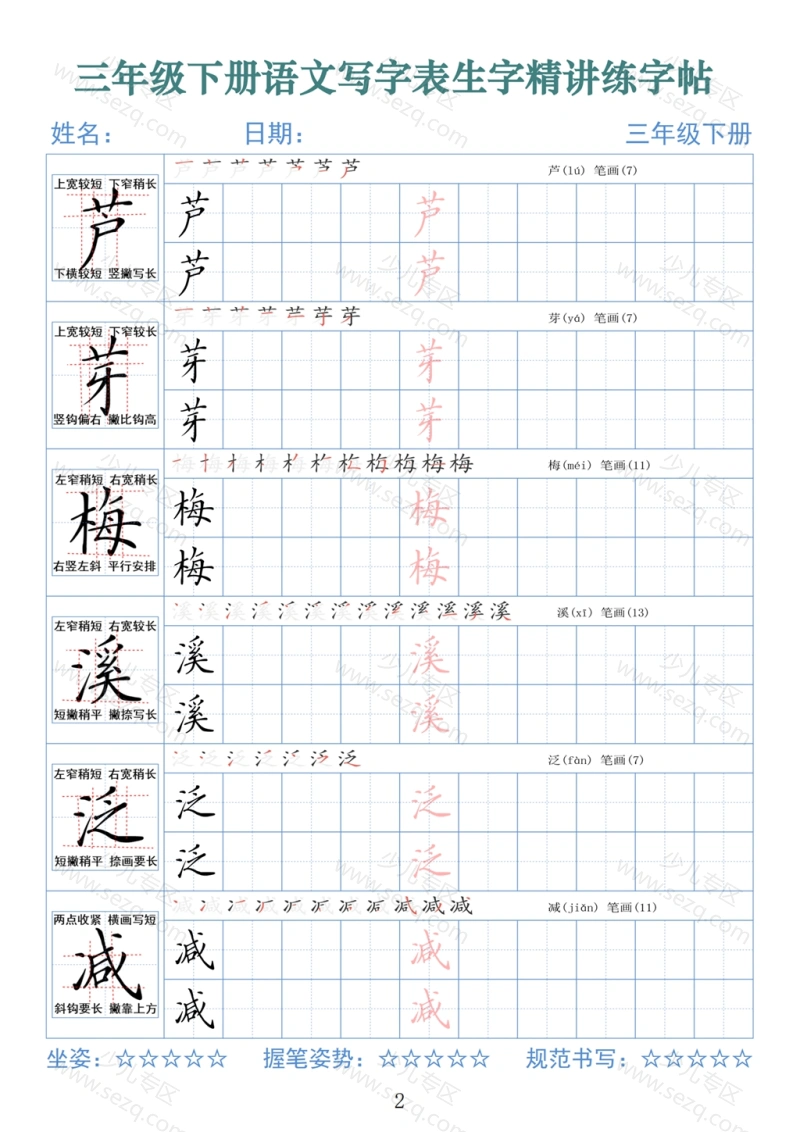 三年级下册语文写字表生字精讲练字帖
姓名： 日期： 三年级下册
芦(lú) 笔画(7)
上宽较短 下窄稍长
芦
下横较短 竖撇写长
芦 芦
芦 芦
芽(yá) 笔画(7)
上宽较短 下窄较长
芽
竖钩偏右 撇比钩高
芽 芽
芽 芽
梅(méi) 笔画(11)
左窄稍短 右宽稍长
梅
右竖左斜 平行安排
梅 梅
梅 梅
溪(xī) 笔画(13)
左窄稍短 右宽较长
溪
短撇稍平 撇捺写长
溪 溪
溪 溪
泛(fàn) 笔画(7)
左窄稍短 右宽稍长
泛
短撇稍平 捺画要长
泛 泛
泛 泛
减(jiǎn) 笔画(11)
两点收紧 横画写短
减
斜钩要长 撇靠上方
减 减
减 减
坐姿：☆☆☆☆☆ 握笔姿势：☆☆☆☆☆ 规范书写：☆☆☆☆☆
2
少儿专区
www.sezq.com